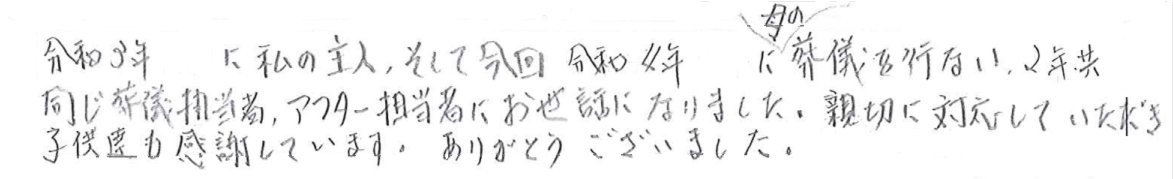 令和3年　　に私の主人、そして今回 令和4年　　母の に葬儀を行ない、2年共
同じ葬儀担当者、アフター担当者にお世話になりました。親切に対応していただき
子供達も感謝しています。ありがとうございました。